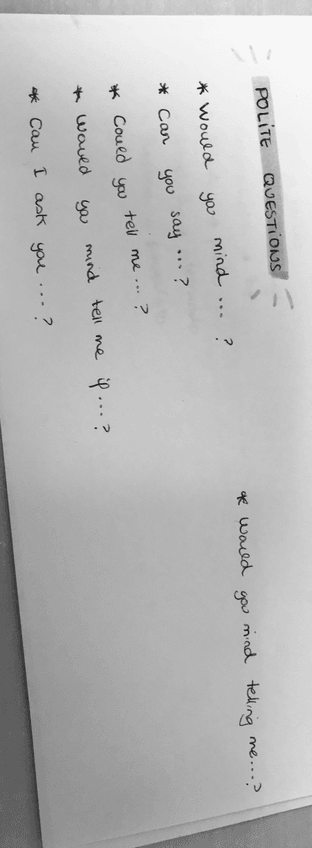 POLITE QUESTIONS
* Would you mind ... ?
* Can you say ... ?
* Could you tell me ... ?
* Would you mind tell me if ... ?
* Can I ask you ... ?
* Would you mind telling me ... ?